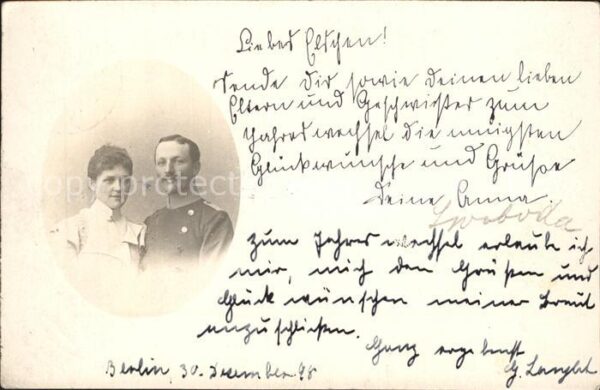 Liebes Elschen!
sende dir sowie deinen lieben
Eltern und Geschwister zum
Jahreswechsel die innigsten
Glückwünsche und Grüße
deine Anna.
Swoboda
zum Jahreswechsel erlaube ich
mir, mich den Grüßen und
Glückwünschen meiner Braut
anzuschließen.
Ganz ergebenst
G.
Berlin, 30. Dezember 98